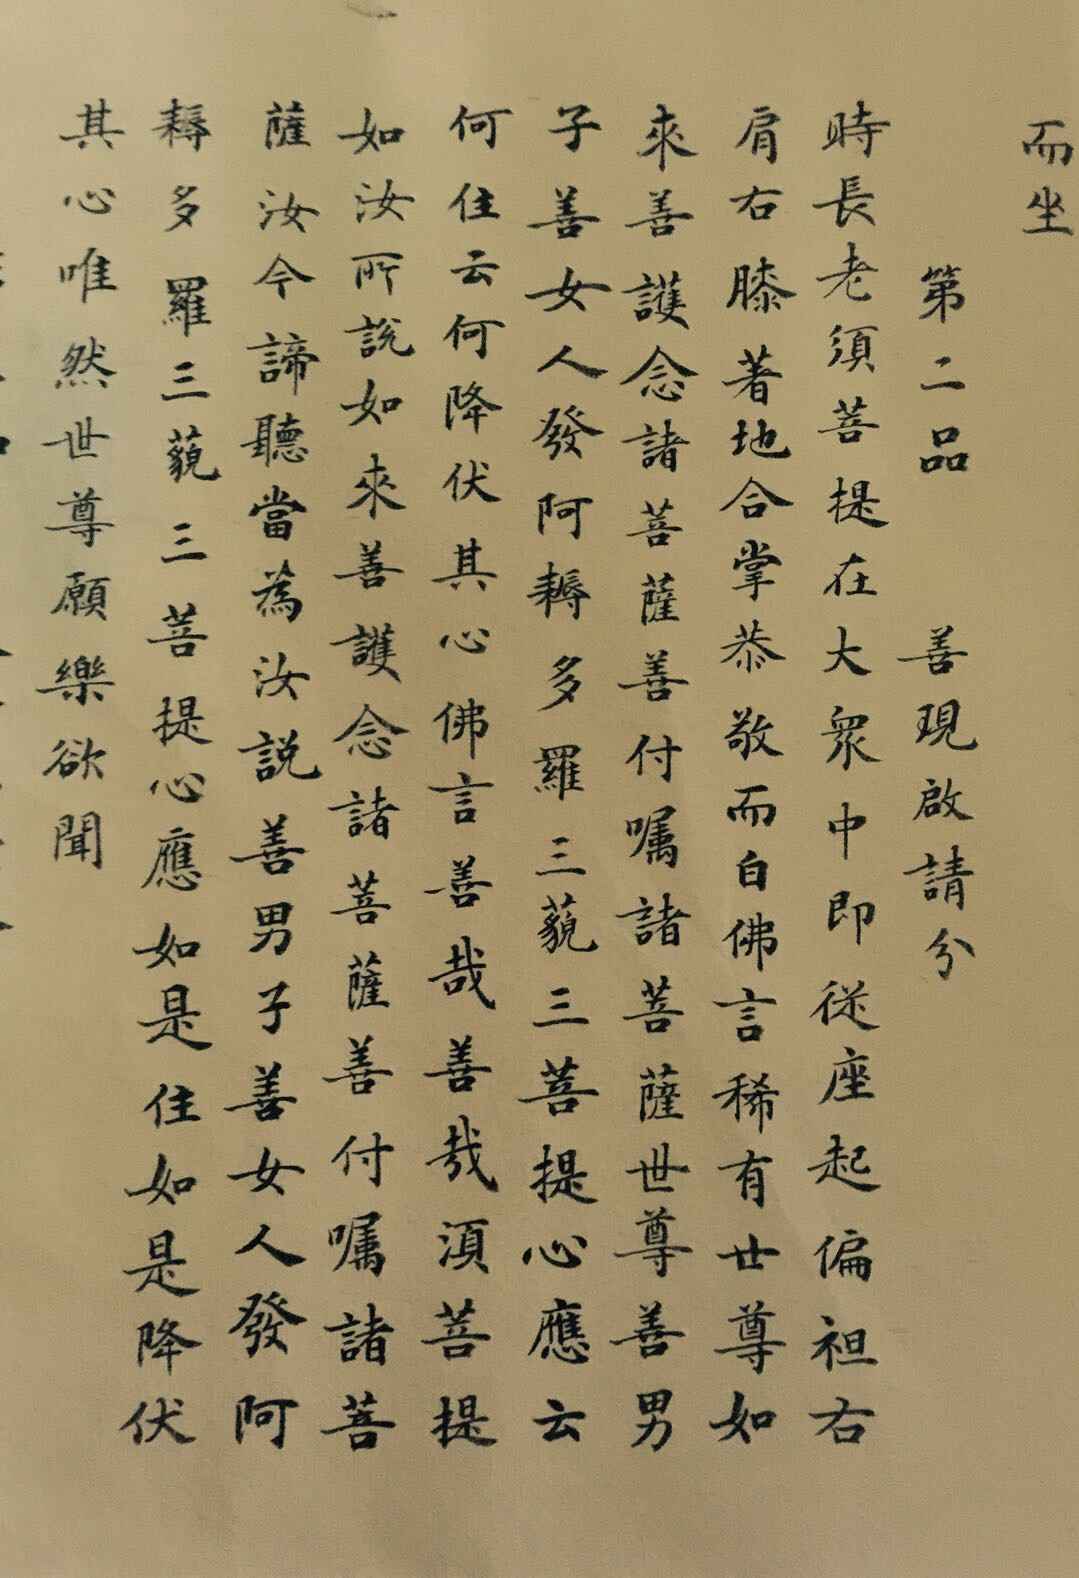 而坐
第二品 善現啟請分
時長老須菩提在大衆中即從座起偏袒右
肩右膝著地合掌恭敬而白佛言稀有世尊如
來善護念諸菩薩善付囑諸菩薩世尊善男
子善女人發阿耨多羅三藐三菩提心應云
何住云何降伏其心佛言善哉善哉須菩提
如汝所說如來善護念諸菩薩善付囑諸菩
薩汝今諦聽當為汝說善男子善女人發阿
耨多羅三藐三菩提心應如是住如是降伏
其心唯然世尊願樂欲聞